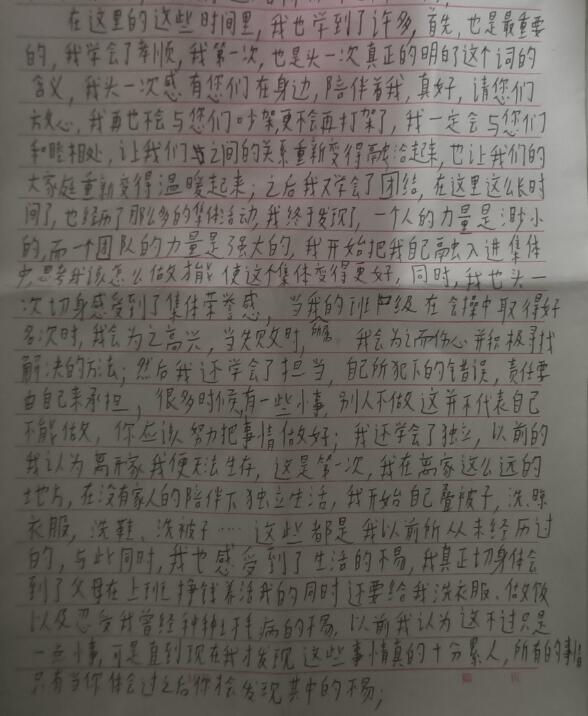 在这里的这些时间里，我也学到了许多，首先，也是最重要
的，我学会了孝顺，我第一次，也是头一次真正的明白了这个词的
含义，我头一次感有您们在身边，陪伴着我，真好，请您们
放心，我再也不会与您们吵架，更不会再打架了，我一定会与您们
和睦相处，让我们之间的关系重新变得融洽起来，也让我们的
大家庭重新变得温暖起来；之后我又学会了团结，在这里这么长时
间了，也经历了那么多的集体活动，我终于发现了，一个人的力量是渺小
的，而一个团队的力量是强大的，我开始把我自己融入进集体
思考我该怎么做才能使这个集体变得更好，同时，我也头一
次切身感受到了集体荣誉感，当我的班级在会操中取得好
名次时，我会为之高兴，当失败时，我会为之而伤心并积极寻找
解决的方法；然后我还学会了担当，自己所犯下的错误，责任要
由自己来承担，很多时候，有一些小事，别人不做这并不代表自己
不能做，你应该努力把事情做好；我还学会了独立，以前的
我认为离开家我便无法生存，这是第一次，我在离家这么远的
地方，在没有家人的陪伴下独立生活，我开始自己叠被子，洗晾
衣服，洗鞋、洗被子……这些都是我以前所从未经历过
的，与此同时，我也感受到了生活的不易，我真正切身体会
到了父母在上班挣钱养活我的同时还要给我洗衣服、做饭
以及忍受我曾经种种坏毛病的不易，以前我认为这不过只是
一点小事，可是直到现在我才发现这些事情真的十分累人，所有的事情
只有当你体会过之后你才会发现其中的不易；